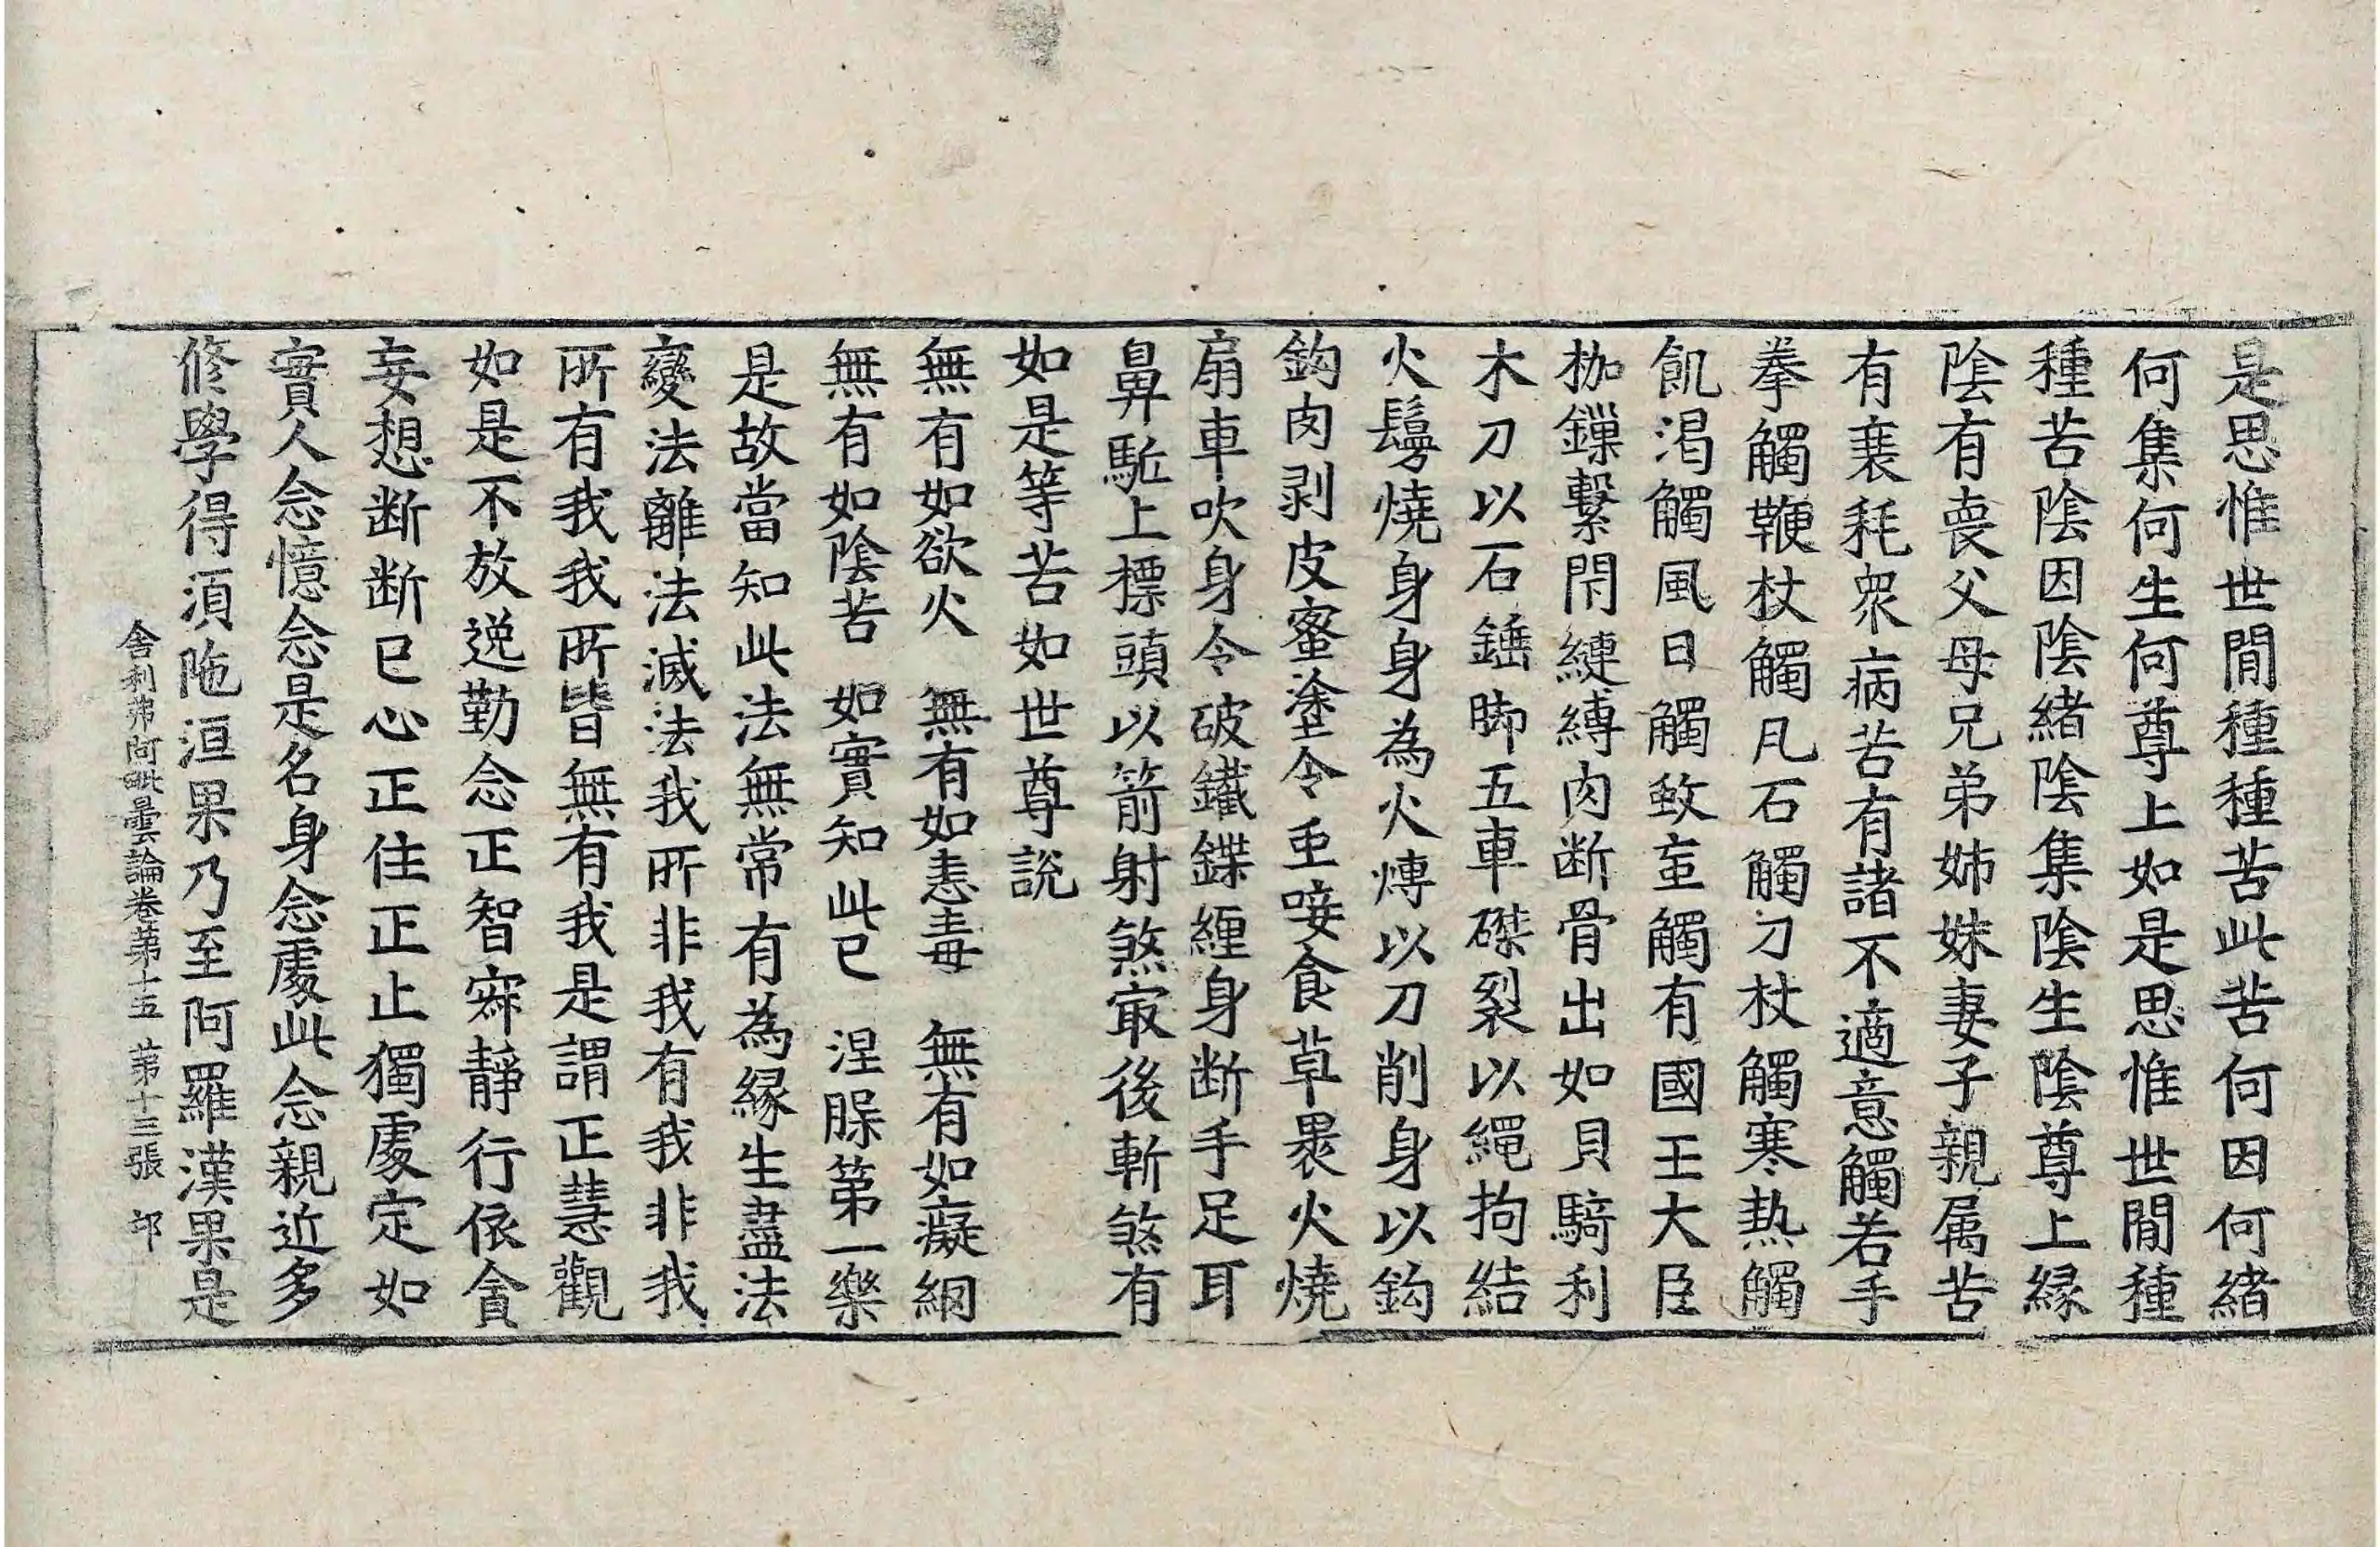 是思惟世閒種種苦此苦何因何緒
何集何生何尊上如是思惟世閒種
種苦陰因陰緒陰集陰生陰尊上縁
陰有喪父母兄弟姉妹妻子親属苦
有衰耗衆病苦有諸不適意觸若手
拳觸鞭杖觸凡石觸刀杖觸寒热觸
飢渇觸風日觸蚊䖟觸有國王大臣
枷鏁繋閇縺縛肉断骨出如貝騎利
木刀以石錘脚五車磔裂以繩拘結
火鬘燒身身為火爂以刀削身以鈎
鈎肉剥皮蜜塗令䖝唼食草褁火燒
扇車吹身令破鐵鍱纒身断手足耳
鼻駈上摽頭以箭射煞㝡後斬煞有
如是等苦如世尊說
無有如欲火　無有如恚毒　無有如癡網
無有如陰苦　如實知此已　涅槃第一樂
是故當知此法無常有為縁生盡法
變法離法滅法我所非我有我非我
所有我我所皆無有我是謂正慧觀
如是不放逸勤念正智寂靜行依貪
妄想断断已心正住正止獨處定如
實人念憶念是名身念處此念親近多
修學得須陁洹果乃至阿羅漢果是
舎利弗阿毗曇論卷第十五　第十三張　邙